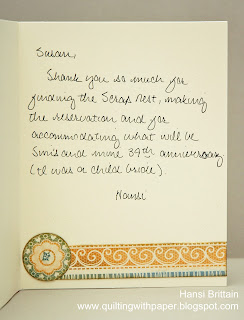 Susan,
Thank you so much for
finding the Scrap Nest, making
the reservation and for
accommodating what will be
and mine 39th anniversary
(I was a child bride).
Hansi
Hansi Brittain
www.quiltingwithpaper.blogspot.com